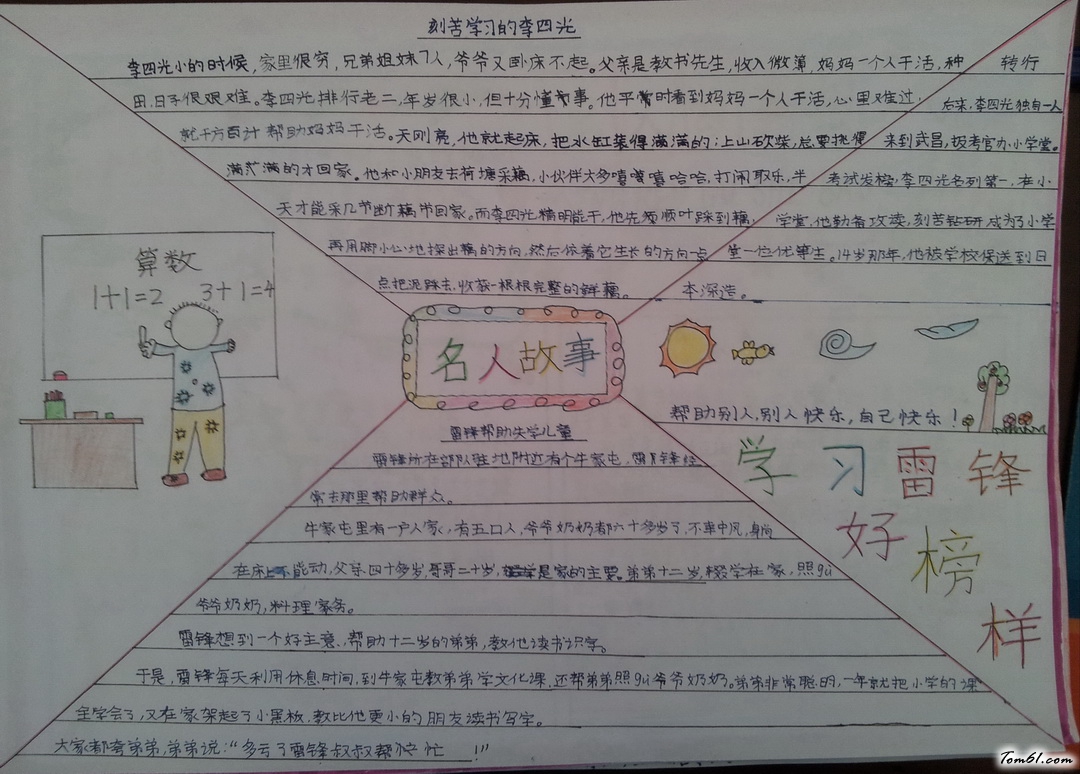 刻苦学习的李四光
李四光小的时候，家里很穷，兄弟姐妹7人，爷爷又卧床不起。父亲是教书先生，收入微薄，妈妈一个人干活，种
田，日子很艰难。李四光排行老二，年岁很小，但十分懂事。他平常时看到妈妈一个人干活，心里难过，
就千方百计帮助妈妈干活。天刚亮，他就起床，把水缸装得满满的；上山砍柴，总要挑得
满满的才回家。他和小朋友去荷塘采藕，小伙伴大多嘻嘻哈哈，打闹取乐，半
天才能采几节断藕节回家。而李四光精明能干，他先顺叶踩到藕，
再用脚小心地探出藕的方向，然后依着它生长的方向一点
点把泥踩去，收获一根根完整的鲜藕。
转行
后来，李四光独自一人
来到武昌，报考官办小学堂。
考试发榜，李四光名列第一，在小
学堂，他勤奋攻读，刻苦钻研，成为了小学
堂一位优等生。14岁那年，他被学校保送到日
本深造。
算数
1+1=2 3+1=4
名人故事
帮助别人，别人快乐，自己快乐！
学习雷锋
好榜
样
雷锋帮助失学儿童
雷锋所在部队驻地附近有个牛家屯，雷锋经
常去那里帮助群众。
牛家屯里有一户人家，有五口人，爷爷奶奶都六十多岁了，不幸中风，身尚
在床上不能动，父亲四十多岁，哥哥二十岁，是家的主要。弟弟十二岁，辍学在家，照gù
爷爷奶奶，料理家务。
雷锋想到一个好主意，帮助十二岁的弟弟，教他读书识字。
于是，雷锋每天利用休息时间，到牛家屯教弟弟学文化课，还帮弟弟照gù爷爷奶奶。弟弟非常聪明，一年就把小学的课
全学会了，又在家架起了小黑板，教比他更小的朋友读书写字。
大家都夸弟弟，弟弟说：“多亏了雷锋叔叔帮忙！”
Tom61.com